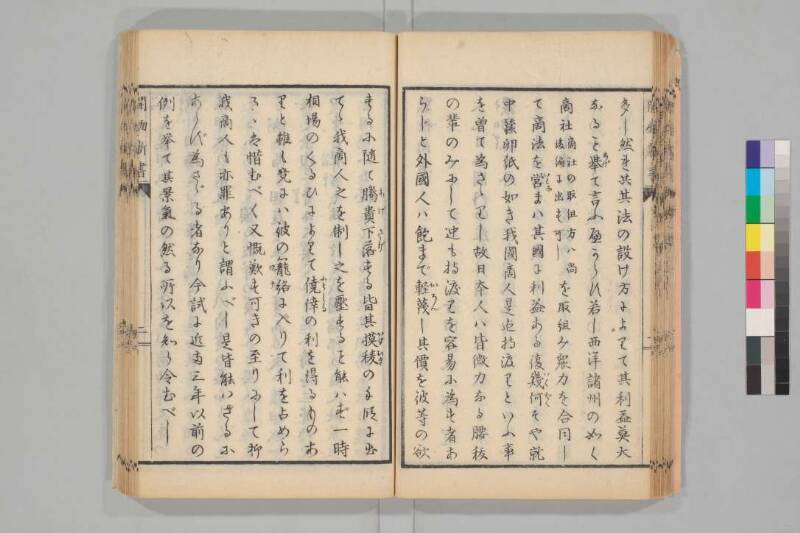 多し然れ共其法の設け方によりて其利益莫大
なること挙て言ふ可からず若し西洋諸州の如く
商社 商社の取組方ハ尚後編に出す可し を取組み衆力を合同し
て商法を営まハ其國に利益ある復幾何そや就
中蚕卵紙の如き我國商人是迄持渡りといふ事
を曽て為さゝれし故日本人ハ皆微力なる腰抜
の輩のみにして迚も持渡りを容易に為す者あ
らしと外國人ハ飽まで軽蔑し其價を彼等の欲
するに随て騰貴下落する皆其摸稜の手段に出
てゝ我商人之を制し之を壓すること能ハす一時
相場のくるひによりて僥倖の利を得るものあ
りと雖も竟にハ彼の籠絡に入りて利を占めら
る豈惜むべく又慨歎す可きの至りにして抑
我商人も亦罪ありと謂ふべし是皆能ハさるに
あらす為さゝる者なり今試に近密三年以前の
例を挙て其景氣の然る所以を知ら令むべし
開物新書
二